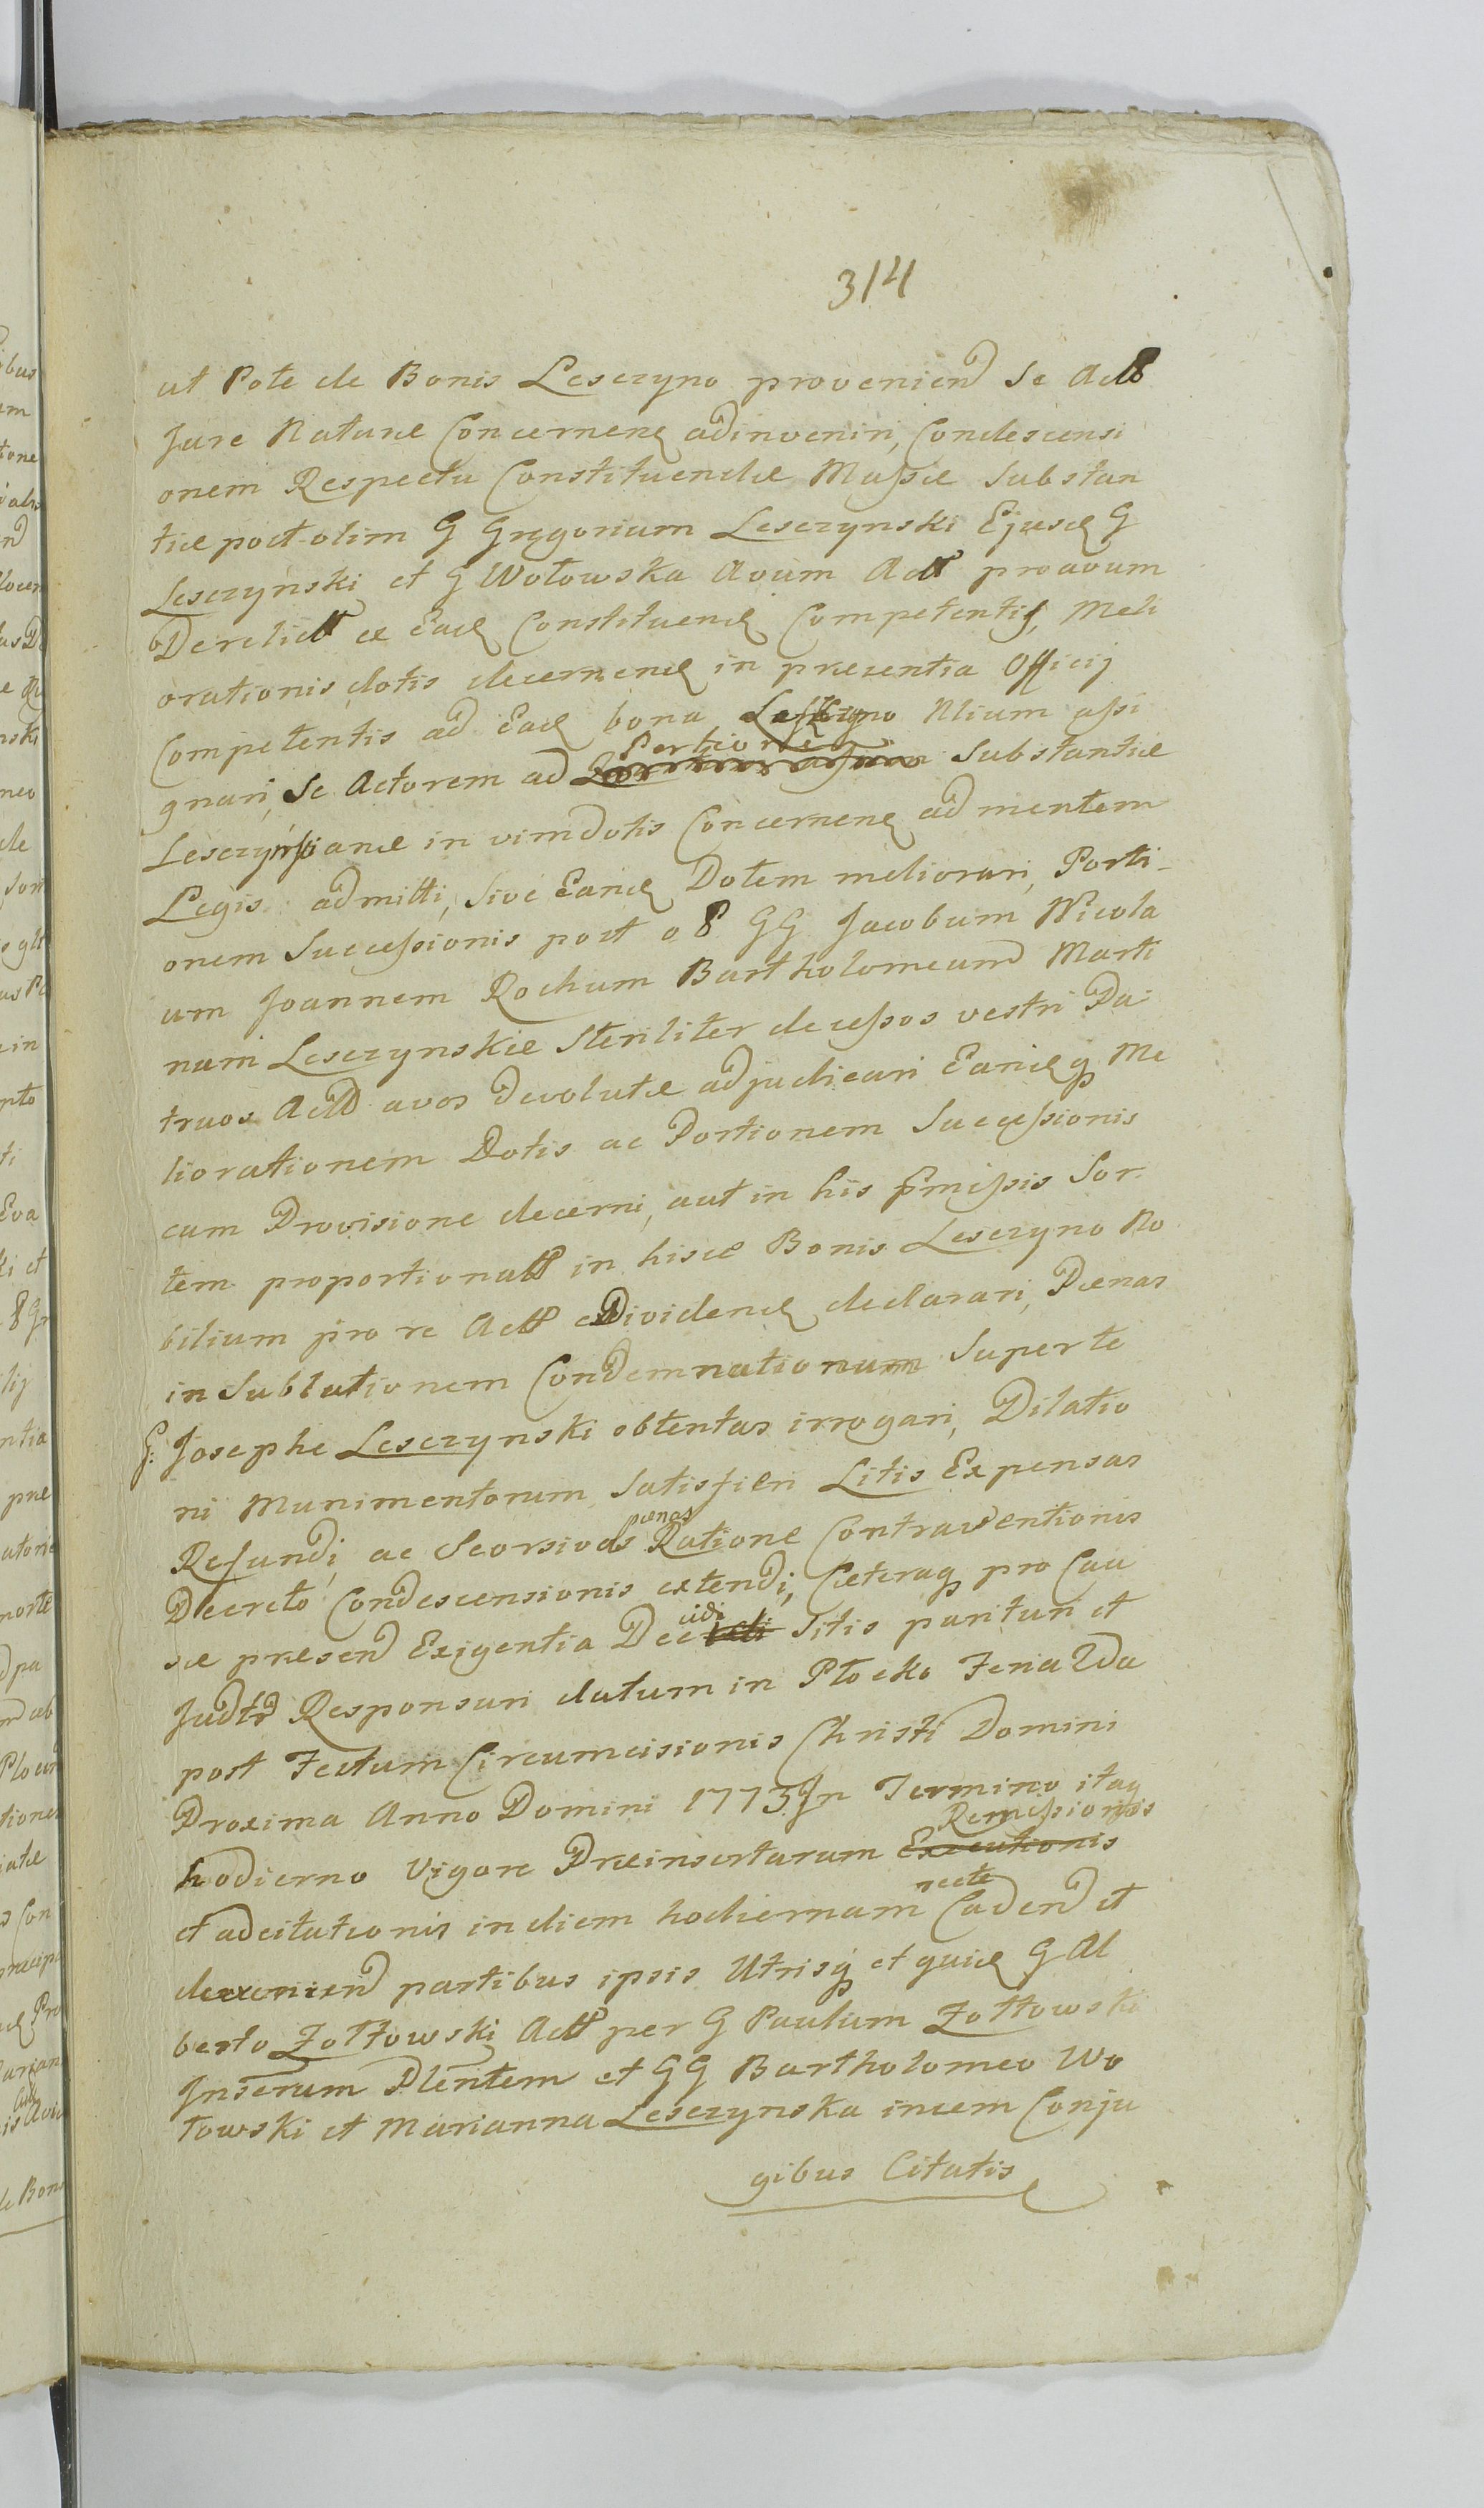 314
ut Pote de Bonis Lesczyno proveniend Se Act
Jure Naturæ Concernen adinveniri, Condescensi
onem Respectu Constituendæ Massæ Substan
tiæ post olim G Gregorium Lesczynski Ejusd G
Lesczynski et G Wołowska Avum Act proavum
Derelict ex Ead Constituend Competentis, Meli
orationis dotis decernend in præsentia Officij
Competentis ad Ead bona Nlium assi
gnari, Se Actorem ad Portione Substantiæ
Lesczynsianæ in vim dotis Concernen ad mentem
Legis admitti, Sive Eand Dotem meliorari, Porti-
onem Successionis post o8 GG Jacobum Nicola
um Joannem Rochum Bartholomeum Marti
num Lesczynskie Steriliter decessos vestri Pa-
truos Act avos devolutæ adjudicari Eandq Me
liorationem Dotis ac Portionem Successionis
cum Provisione decerni, aut in his pmissis Sor-
tem proportionatt in hisce Bonis Lesczyno No
bilium pro re Act Dividend declarari, Pænas
in Sublationem Condemnationum Super te
G: Josephe Lesczynski obtentas irrogari, Dilatio
ni Munimentorum Satisfieri Litis Expensas
Refundi, ac Seorsivas pænas Ratione Contraventionis
Decreto Condescensionis extendi, Cæteraq pro Cau
sæ præsend Exigentia Decidi Sitis parituri et
Judtr Responsuri datum in Płocko Feria 2da
post Festum Circumcisionis Christi Domini
Proxima Anno Domini 1773 In Termino itaq
hodierno Vigore Præinsertarum Executionis Remissionis
et adcitationis in diem hodiernam recte Cadend et
deveniend partibus ipsis Utrisq et quid G Al
berto Żołtowski Act per G Paulum Żołtowski
Inserum Plentem et GG Bartholomeo Wo
łowski et Marianna Lesczynska incem Conju
gibus Citatis